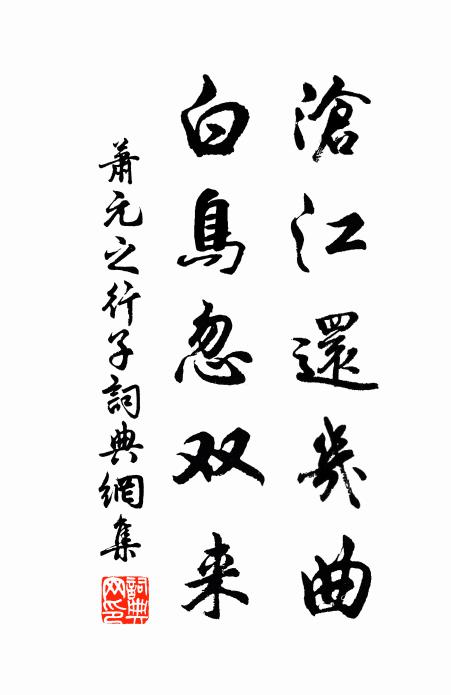 滄江還幾曲
白鳥忽双来
蕭元之行子詞典網集
詞典网印